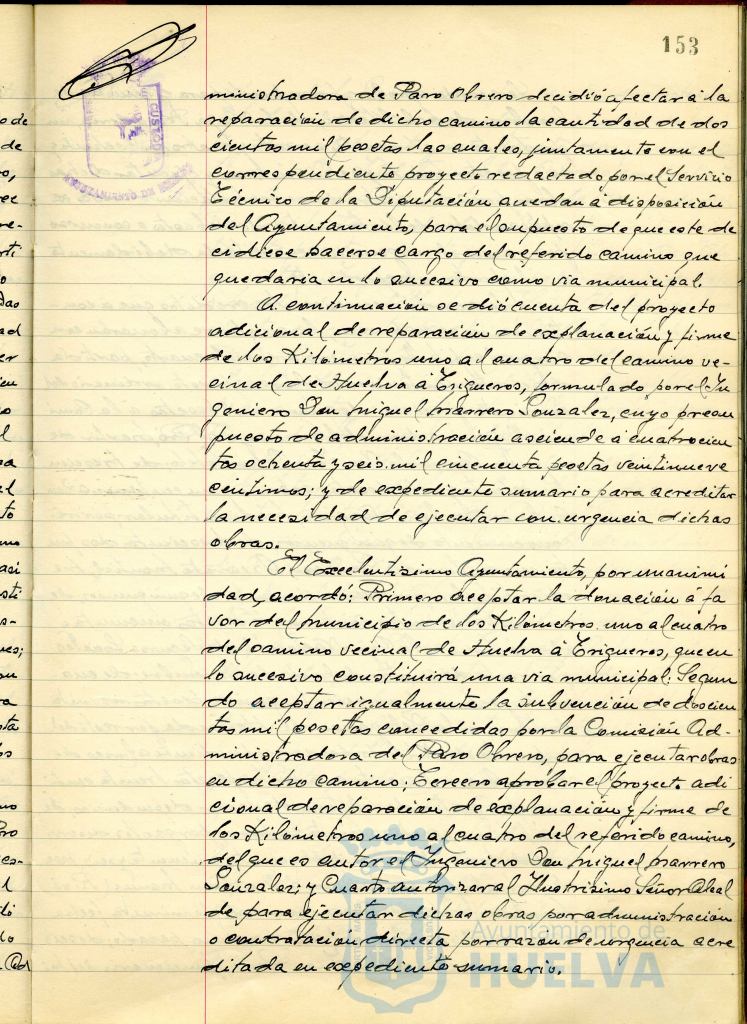 153
ministradora de Paro Obrero decidió afectar á la
reparación de dicho camino la cantidad de dos
cientas mil pesetas las cuales, juntamente con el
correspondiente proyecto redactado por el Servicio
Técnico de la Diputación quedan á disposición
del Ayuntamiento, para el supuesto de que este de
cidiese hacerse cargo del referido camino que
quedaria en lo sucesivo como via municipal.
A continuación se dió cuenta del proyecto
adicional de reparación de explanación y firme
de los Kilómetros uno al cuatro del camino ve-
cinal de Huelva á Trigueros, formulado por el In
geniero Don Miguel Marrero Gonzalez, cuyo presu
puesto de administración asciende á cuatrocien
tas ochenta y seis mil cincuenta pesetas veintinueve
centimos; y de expediente sumario para acreditar
la necesidad de ejecutar con urgencia dichas
obras.
El Excelentisimo Ayuntamiento, por unanimi
dad, acordó: Primero aceptar la donación á fa
vor del Municipio de los Kilómetros uno al cuatro
del camino vecinal de Huelva á Trigueros, que en
lo sucesivo constituirá una via municipal; Segun
do aceptar igualmente la subvención de doscien
tas mil pesetas concedidas por la Comisión Ad-
ministradora del Paro Obrero, para ejecutar obras
en dicho camino; Tercero aprobar el proyecto adi
cional de reparación de explanación y firme de
los Kilómetros uno al cuatro del referido camino,
del que es autor el Ingeniero Don Miguel Marrero
Gonzalez; y Cuarto autorizar al Ilustrisimo Señor Alcal
de para ejecutar dichas obras por administración
o contratación directa por razon de urgencia acre
ditada en expediente sumario.
Ayuntamiento de
HUELVA